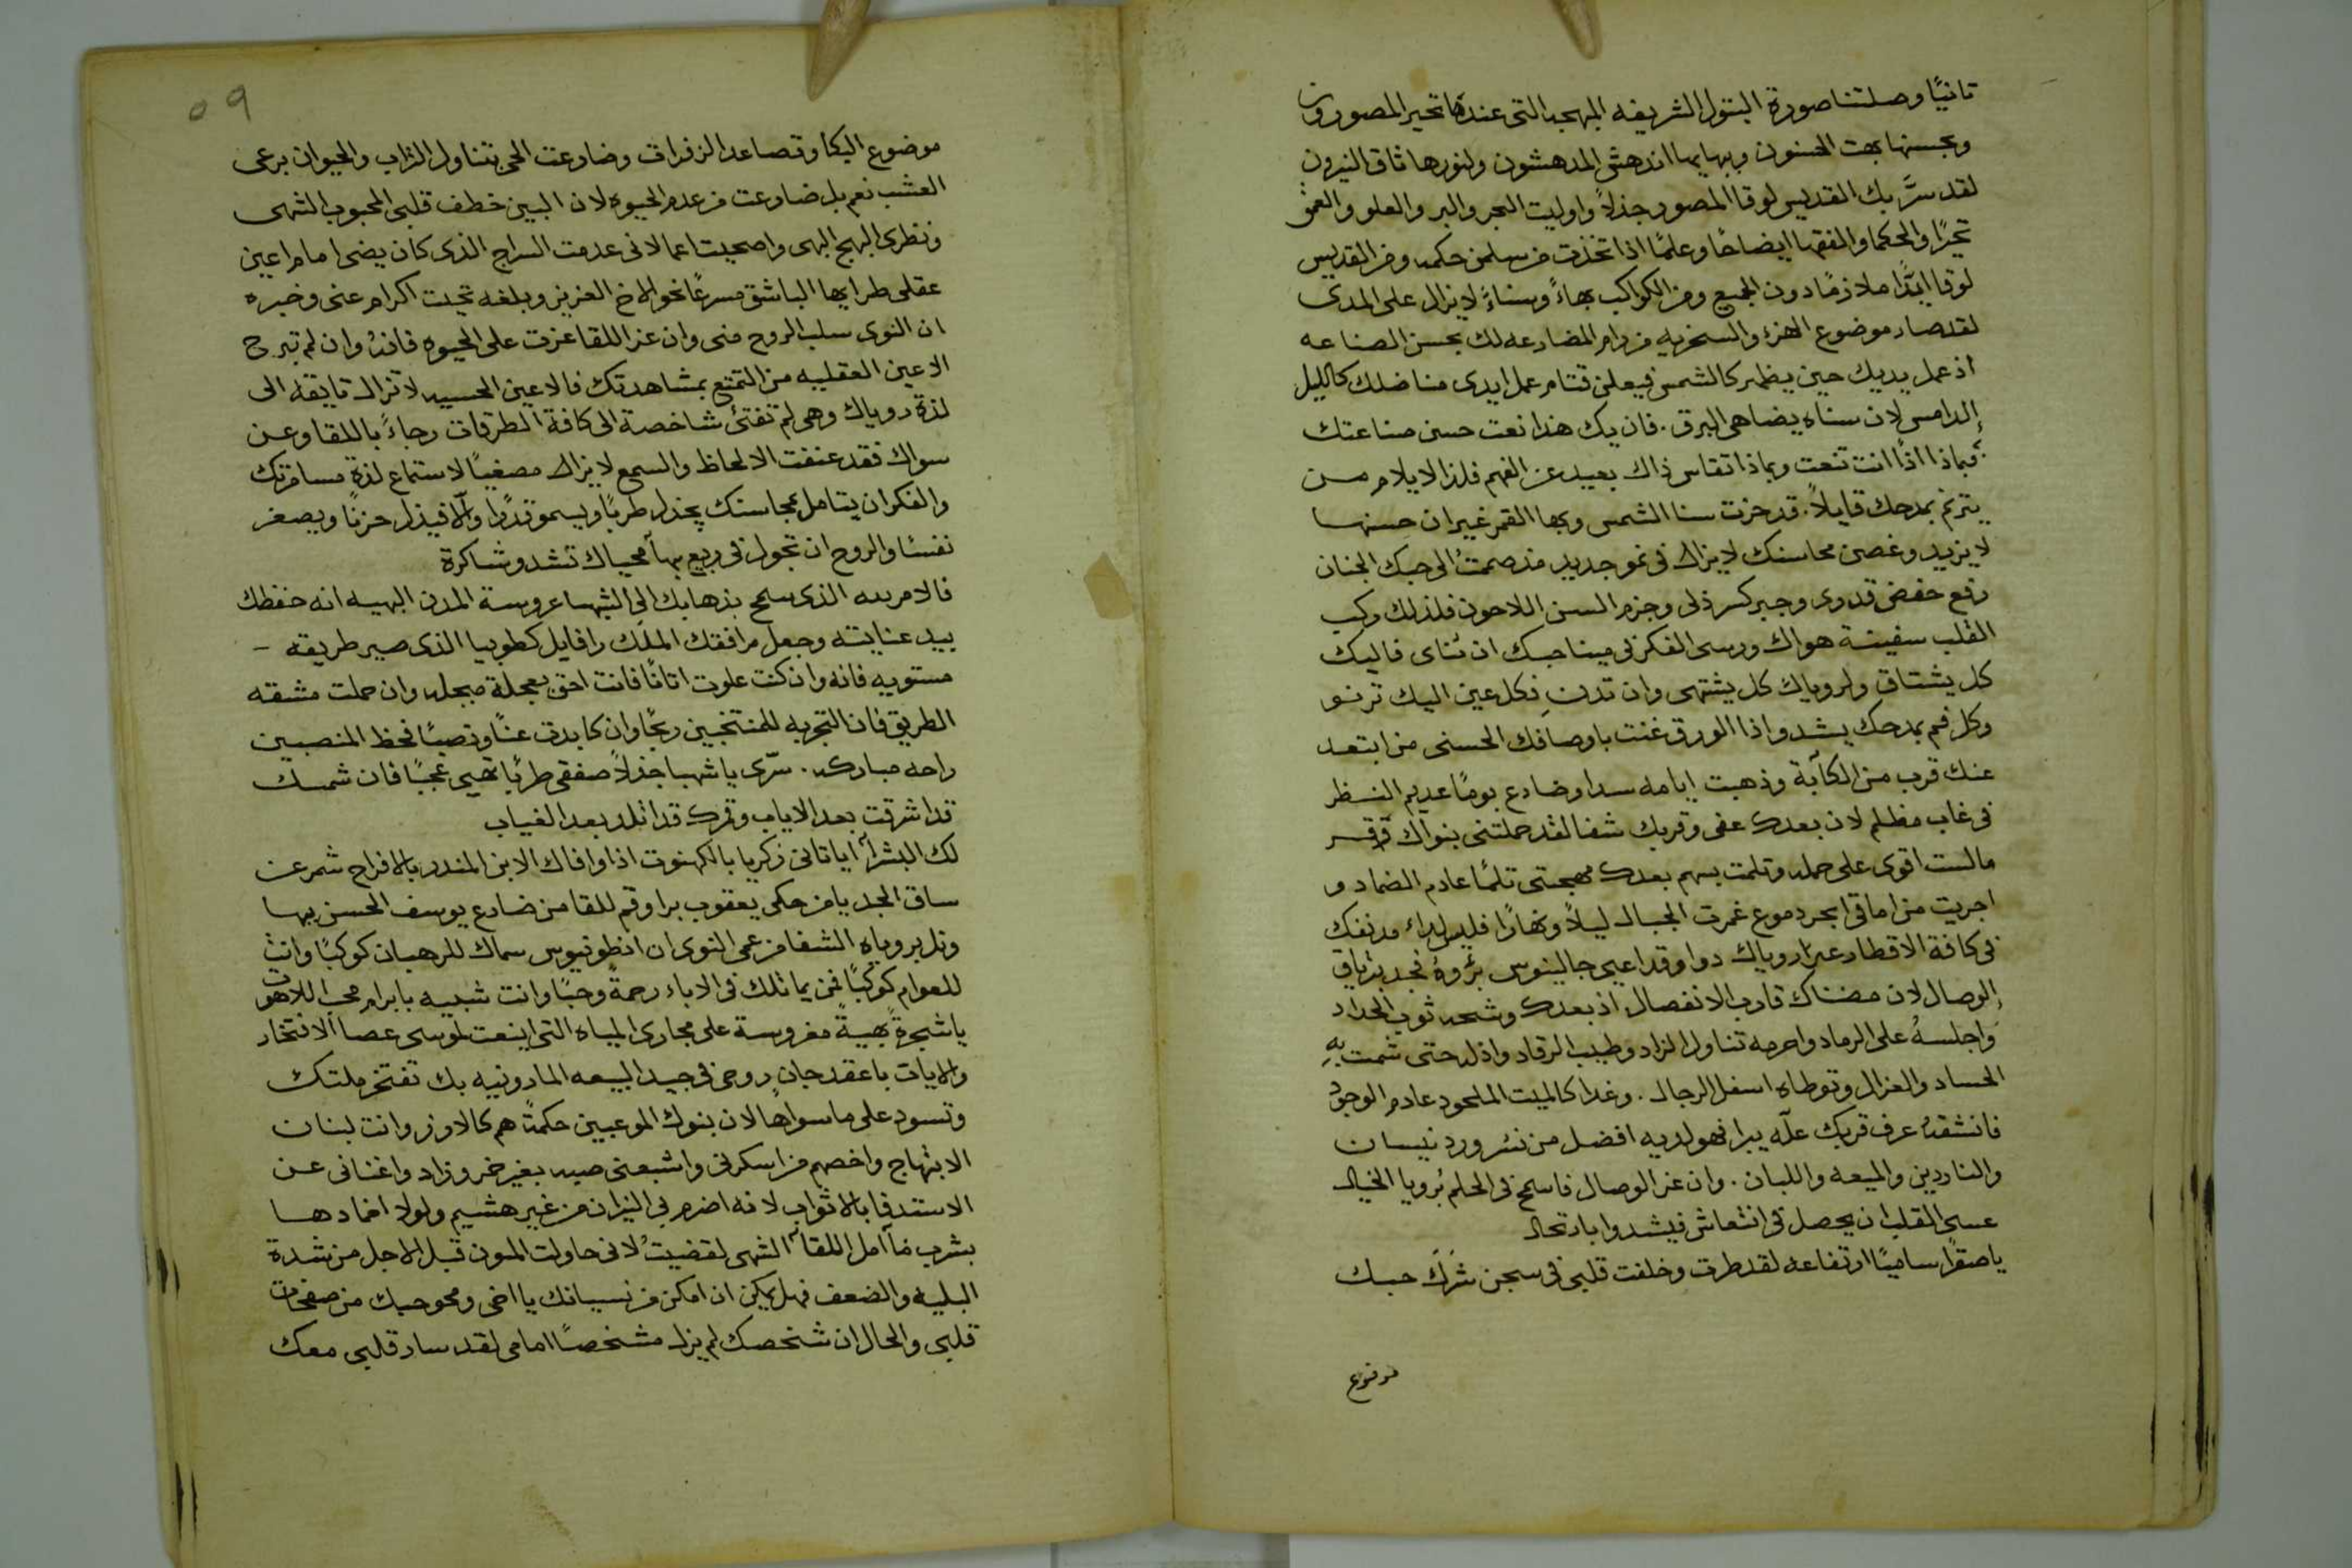 تانيًا وصلتنا صورة البتول الشريفه المبهجه التى عندها تحير المصورون
وبحسنها بهت الحسنون وببهايها اندهش المدهشون ولنورها تاق النيرون
لقد سرَّ بك القديس لوقا المصور جذلاً واوليت البحر والبر والعلو والعمق
تحيرًا والحكما والفقها ايضاحًا وعلمًا اذ اتخذت من سليمن حكمه ومن القديس
لوقا ابدًا ملازمًا دون الجميع ومن الكواكب بهاءً وسناءً لا يزال على المدى
لقد صار موضوع الهزء والسخريه من رام المضارعه لك بحسن الصناعه
اذ عمل يديك حين يظهر كالشمس فيعلن قتام عمل ايدى مناضلك كالليل
الدامس لان سناه يضاهى البرق . فان يك هذا نعت حسن صناعتك
فبماذا اذًا انت تنعت وبماذا تقاس ذاك بعيد عن الفهم فلذا لا يلام من
يترنم بمدحك قايلاً . قد حزت سنا الشمس وبها القمر غير ان حسنها
لا يزيد وغصن محاسنك لا يزال فى نمو جديد مذ صمت الى حبك الجنان
رفع خفض قدرى وجبر كسر ذلى وجزم السن اللاحون فلذلك ركب
القلب سفينة هواك ورسى الفكر فى مينا حبك ان تناى فاليك
كل يشتاق ولروياك كل يشتهى وان تدن فكل عين اليك ترنو
وكل فم بمدحك يشدو اذا الورق غنت باوصافك الحسنى من ابتعد
عنك قرب من الكآبة وذهبت ايامه سدا وضارع بومًا عديم النظر
فى غاب مظلم لان بعدك عفى وقربك شفا لقد حملتنى بنواك وقر
ما لست اقوى على حمله وتلمت بسهم بعدك مهجتى تلمًا عادم الضماد و
اجريت من اماقى ابحر دموع غمرت الجبال ليلاً ونهارًا فليس لداء مدنفك
فى كافة الاقطار عير روياك دوا وقد اعيى جالينوس برؤه فجد بترياق
الوصال لان مضناك قارب الانفصال اذ بعدك وشحه ثوب الحداد
واجلسه على الرماد واحرمه تناول الزاد وطيب الرقاد واذله حتى شمت به
الحساد والعزال وتوطاه اسفل الرجال . وغدا كالميت الملحود عادم الوجود
فانشقه عرف قربك علّه يبرا فهو لديه افضل من نشر ورد نيسان
والناردين والميعه واللبان . وان عز الوصال فاسمح فى الحلم برويا الخيال
عسى القلب ان يحصل فى انتعاش فيشدو بارتحال
يا صقرًا ساميًا ارتفاعه لقد طرت وخلفت قلبى فى سجن شرك حبك
موضوع
٥٩
موضوع البكا وتصاعد الزفرات وضارعت الحى بتناول التراب والحيوان برعى
العشب نعم بل ضارعت من عدم الحيوه لان البين خطف قلبى المحبوب الشهى
ونظرى البهج البهى واصحبت اعما لانى عدمت السراج الذى كان يضى امام اعين
عقلى طر ايها الباشق مسرعًا نحو الاخ العزيز وبلغه تحيت اكرام عنى وخبره
ان النوى سلب الروح منى وان عز اللقا عزت على الحيوه فانه وان لم تبرح
الاعين العقليه من التمتع بمشاهدتك فالاعين الحسيه لا تزال تايقه الى
لذة روياك وهى لم تفتئ شاخصة الى كافة الطرقات رجاءً باللقا وعن
سواك فقد عنفت الالحاظ والسمع لا يزال مصغيًا لاستماع لذة مسامرتك
والفكر ان يتامل بمحاسنك يجذل طربًا ويسمو قدرًا والا فيذل حزنًا ويصغر
نفسًا والروح ان تجول فى ربيع بهآ محياك تشدو شاكرة
فالامر لله الذى سمح بذهابك الى الشهبا عروسة المدن البهيه انه حفظك
بيد عنايته وجعل مرافقك الملك رافايل كطوبيا الذى صير طريقه -
مستويه فانه وان كنت علوت اتانًا فانت احق بعجلة مبجله وان حملت مشقه
الطريق فان التجربه للمنتخبين ربحًا وان كابدت عنًا ونصبًا فحظ المنصبين
راحه مباركه . سرّى يا شهبا جذلاً صفقى طربًا تهيى عجبًا فان شمسك
قد اشرقت بعد الاياب وقمرك قد انلد بعد الغياب
لك البشرآ اياتانى زكريا بالكهنوت اذ اوافاك الابن المنذر بالافراح شمر عن
ساق الجد يا من حكى يعقوب برا وقم للقا من ضارع يوسف الحسن بها
ونل بروياه الشفا من عمى النوى ان انطونيوس سماك للرهبان كوكبًا وانت
للعوام كوكبًا فمن يماثلك فى الاباء رحمةً وحبًا وانت شبيه بابرام محب اللاهوت
يا شجرة بهيةً مغروسة على مجارى المياه التى اينعت لموسى عصا الافتخار
والايات يا عقد جمان روحى فى جيد البيعه المارونيه بك تفتخر ملتك
وتسود على ما سواها لان بنوك الموعبين حكمةً هم كالارز وانت لبنان
الابتهاج واخصهم من اسكرنى واشبعنى حبه بغير خمر وزاد واغنانى عن
الاستدفا بالاثواب لانه اضرم بى النيران من غير هشيم ولولا اخمادها
بشرب مآ امل اللقآ الشهى لقضيت لانى حاولت المون قبل الاجل من شدة
البليه والضعف فهل يمكن ان امكن من نسيانك يا اخى ومحو حبك من صفحات
قلبى والحال ان شخصك لم يزل مشخصًا امامى لقد سار قلبى معك